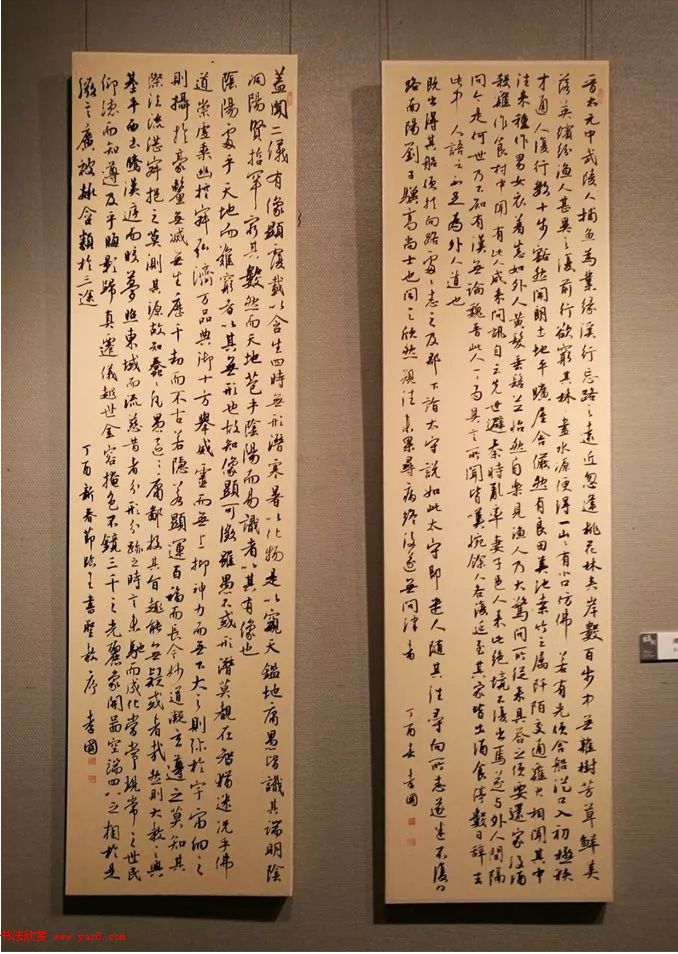 晋太元中武陵人捕魚為業緣溪行忘路之遠近忽逢桃花林夹岸數百步中無雜樹芳草鮮美
落英繽纷漁人甚異之復前行欲窮其林盡水源便得一山山有小口仿佛若有光便舍船從口入初極狹
才通人復行數十步豁然開朗土地平曠屋舍儼然有良田美池桑竹之屬阡陌交通雞犬相聞其中
往来種作男女衣着悉如外人黄髮垂髫並怡然自樂見漁人乃大驚問所從来具答之便要還家設酒
殺雞作食村中聞有此人咸来問訊自云先世避秦時亂率妻子邑人来此絕境不復出焉遂与外人間隔
問今是何世乃不知有漢無論魏晉此人一一為具言所聞皆嘆惋餘人各復延至其家皆出酒食停數日辭去
此中人語云不足為外人道也
既出得其船便扶向路處處志之及郡下詣太守說如此太守即遣人隨其往尋向所志遂迷不復得
路南陽劉子驥高尚士也聞之欣然規往未果尋病終後遂無問津者
丁酉春 李國
蓋聞二儀有像顯覆載以含生四時無形潛寒暑以化物是以窺天鑑地庸愚皆識其端明陰
洞陽賢哲罕窮其數然而天地苞乎陰陽而易識者以其有像也
陰陽處乎天地而難窮者以其無形也故知像顯可徵雖愚不惑形潛莫覩在智猶迷况乎佛
道崇虛乘幽控寂弘濟万品典御十方舉威靈而無上抑神力而無下大之則弥於宇宙細之
則攝於豪釐無滅無生歷千劫而不古若隱若顯運百福而長今妙道凝玄遵之莫知其
際法流湛寂挹之莫測其源故知蠢蠢凡愚區區庸鄙投其旨趣能無疑或者哉然則大教之興
基乎西土騰漢庭而皎夢照東域而流慈昔者分形分跡之時言未馳而成化當常現常之世民
仰德而知遵及乎晦影歸真遷儀越世金容掩色不鏡三千之光麗象開圖空端四八之相於是
微言廣被拯含類於三途
丁酉新春節臨之書聖教序 李國
书法欣赏 www.yac8.com